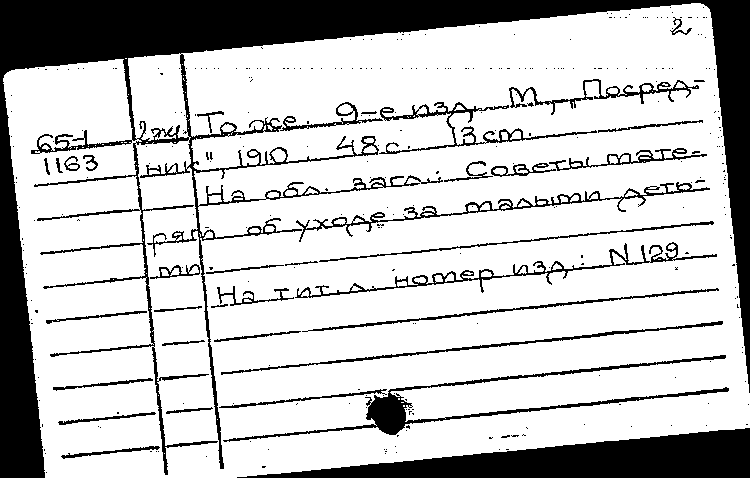 2
65-1 2жу. То же. 9-е изд. М., „Посред-
1163 ник", 1910. 48 с. 13 см.
На обл. загл.: Советы мате-
рям об уходе за малыми деть-
ми.
На тит. л. номер изд.: N 129.